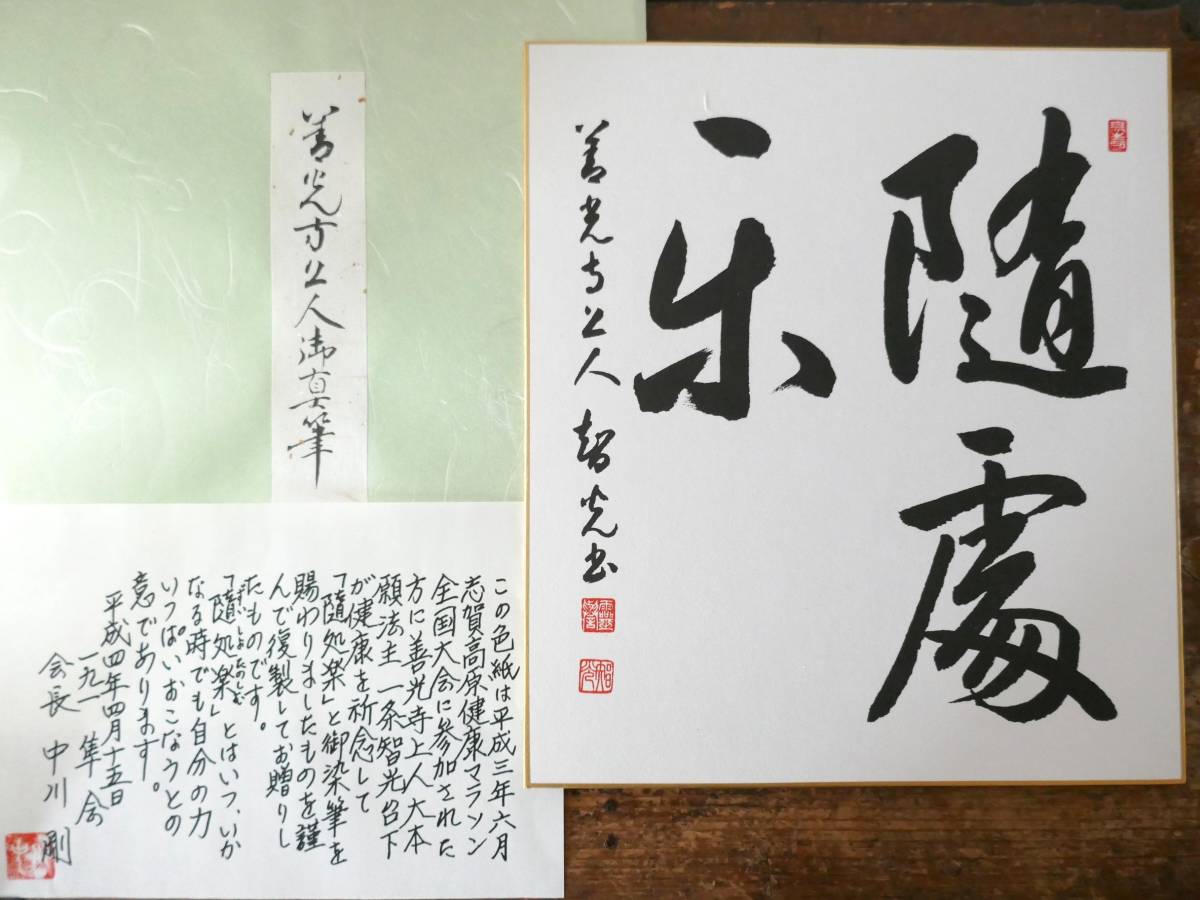 隨處
樂
善光寺上人智光書
善光寺上人御真筆
この色紙は平成三年六月
志賀高原健康マラソン
全国大会に参加された
方に善光寺上人大本
願法主一条智光台下
が健康を祈念して
「随処楽」と御染筆を
賜わりましたものを謹
んで復製してお贈りし
たものです。
「随処楽」とはいつ、いか
なる時でも自分の力
いっぱいおこなうとの
意であります。
平成四年四月十五日
一九一 隼会
会長 中川 剛